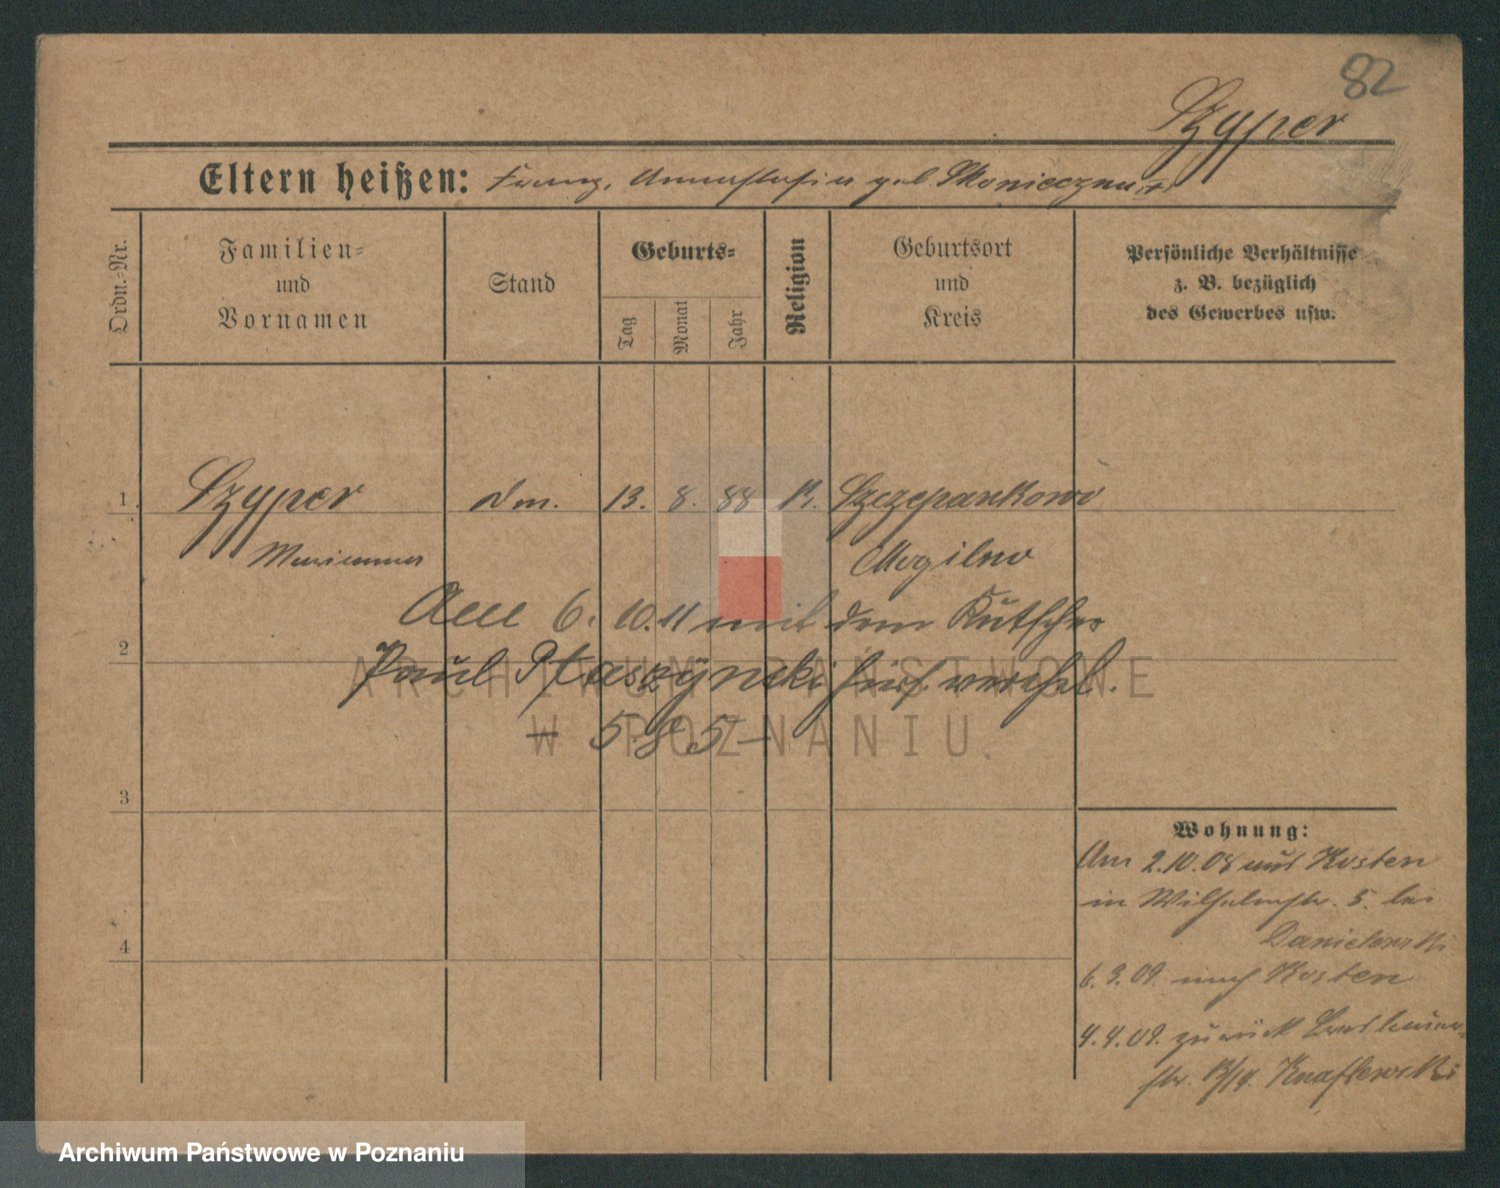 82
Szyper
Eltern heißen: Franz, Anastasia geb. Skonieczna
Ordn.-Nr.
Familien-
und
Vornamen
Stand
Geburts-
Tag
Monat
Jahr
Religion
Geburtsort
und
Kreis
Persönliche Verhältnisse
z. B. bezüglich
des Gewerbes usw.
1 Szyper 13. 8. 88 K. Szczepankowo
Marianna Mogilno
Am 6. 10. 11 mit dem Kutscher
2
Paul Ptaszynski hier verehel.
- 585 -
3
4
Wohnung:
Am 2.10.08 aus Kosten
in Wilhelmstr. 5. bei
Danielewski
6. 3. 09. nach Kosten
4. 4. 09. zurück
str. Knaflewski
ARCHIWUM PAŃSTWOWE
W POZNANIU
Archiwum Państwowe w Poznaniu